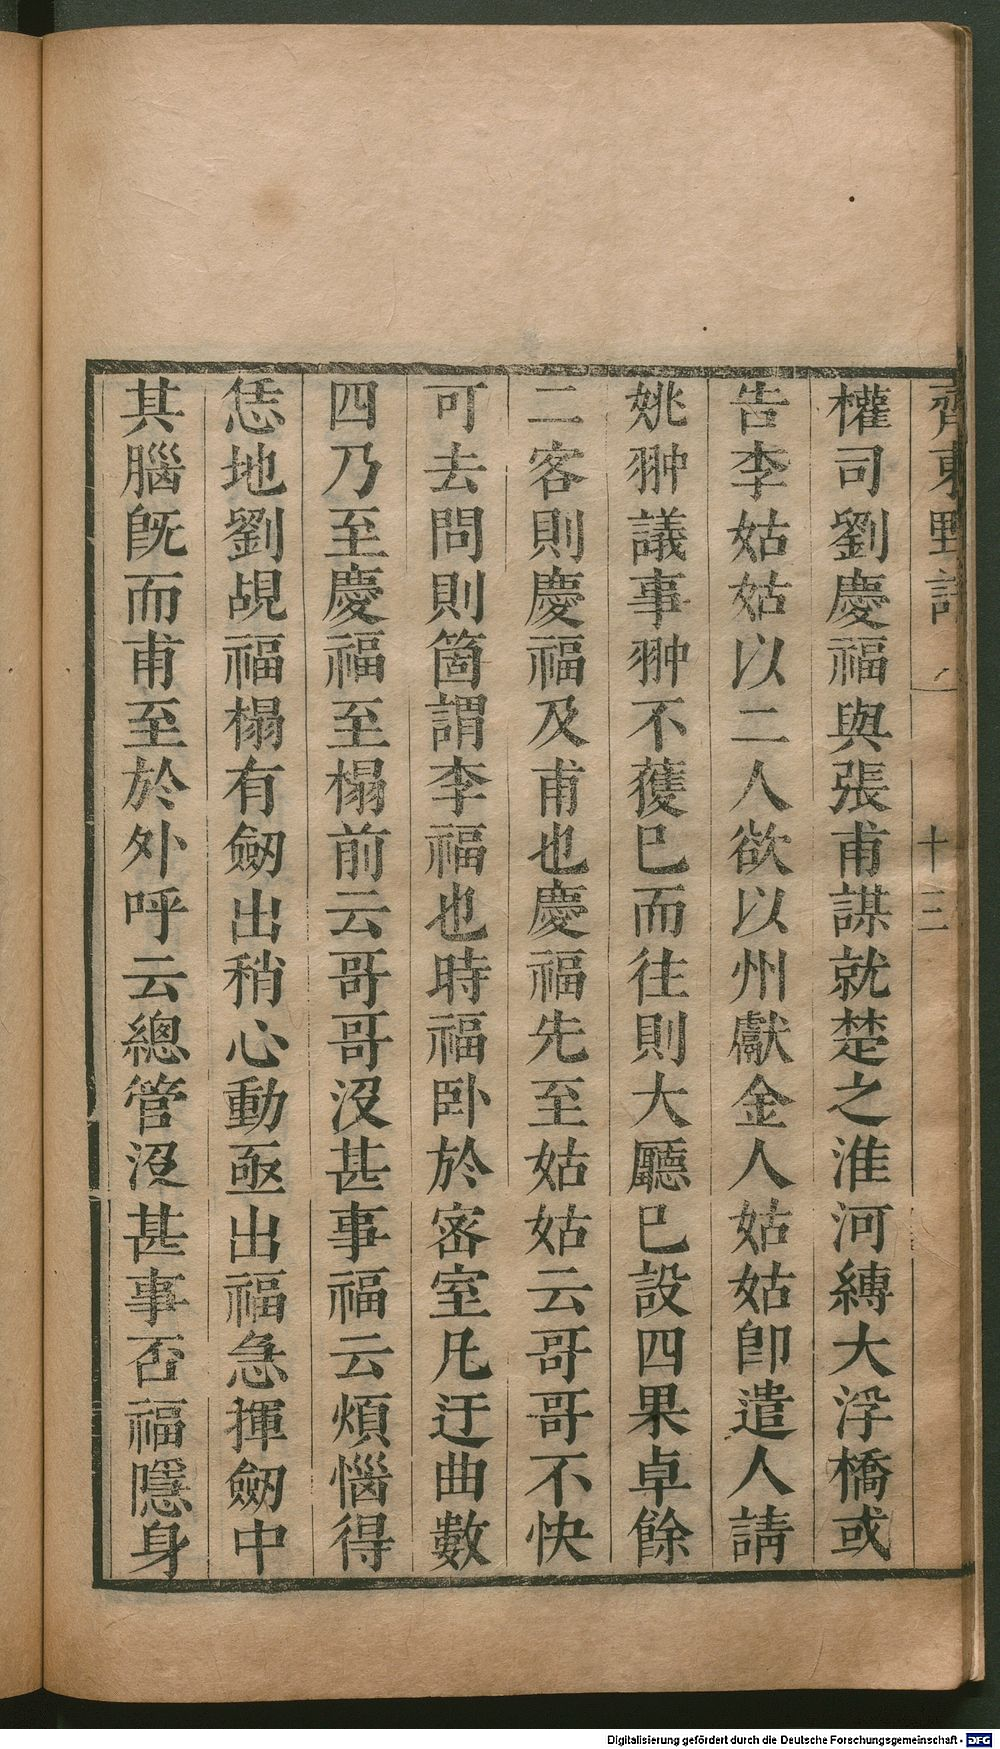 齊東野語
十三
權司劉慶福與張甫謀就楚之淮河縛大浮橋或
告李姑姑以二人欲以州獻金人姑姑卽遣人請
姚翀議事翀不獲巳而往則大廳巳設四果卓餘
二客則慶福及甫也慶福先至姑姑云哥哥不快
可去問則箇謂李福也時福臥於密室凡迂曲數
四乃至慶福至榻前云哥哥沒甚事福云煩惱得
恁地劉覘福榻有劒出稍心動亟出福急揮劒中
其腦旣而甫至於外呼云總管沒甚事否福隱身
Digitalisierung gefördert durch die Deutsche Forschungsgemeinschaft - DFG